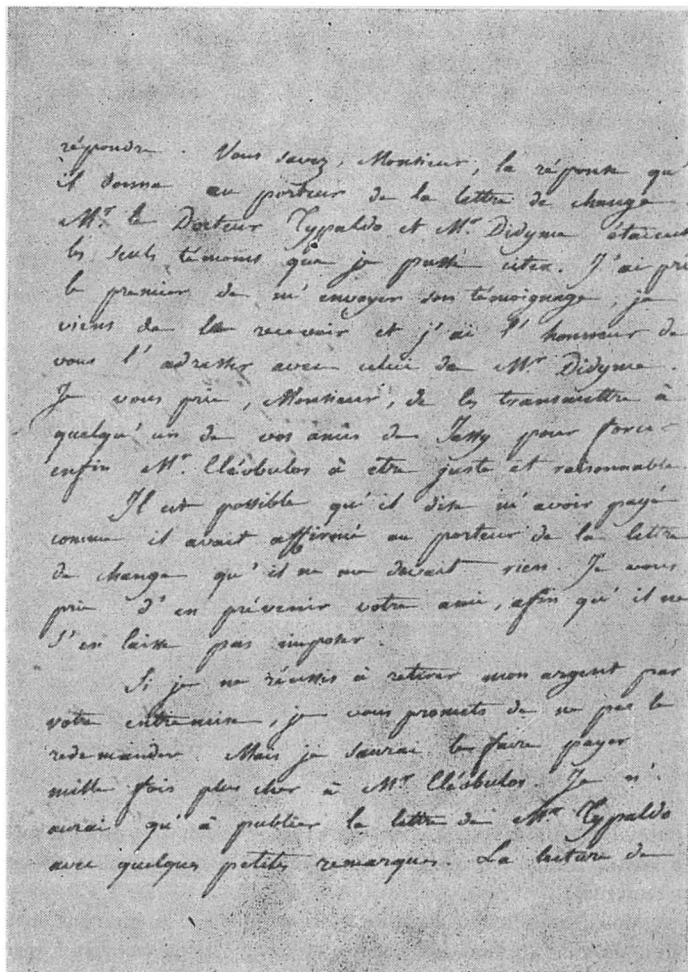 répondre. Vous savez, Monsieur, la réponse qu'
il donna au porteur de la lettre de change
Mr. le Docteur Typaldo et Mr. Didyme étaient
les seuls témoins que je pusse citer. J'ai prié
le premier de m'envoyer son témoignage, je
viens de le recevoir et j'ai l'honneur de
vous l'adresser avec celui de Mr Didyme.
Je vous prie, Monsieur, de les transmettre à
quelqu'un de vos amis de Jassy pour forcer
enfin Mr. Cléobulos à etre juste et raisonnable.
Il est possible qu'il dise m'avoir payé
comme il avait affirmé au porteur de la lettre
de change qu'il ne me devait rien. Je vous
prie d'en prévenir votre ami, afin qu'il ne
s'en laisse pas imposer.
Si je ne réussis à retirer mon argent par
votre entremise, je vous promets de ne pas le
redemander. Mais je saurai le faire payer
mille fois plus cher à Mr. Cléobulos. Je n'
aurai qu'à publier la lettre de Mr Typaldo
avec quelques petites remarques. La lecture de